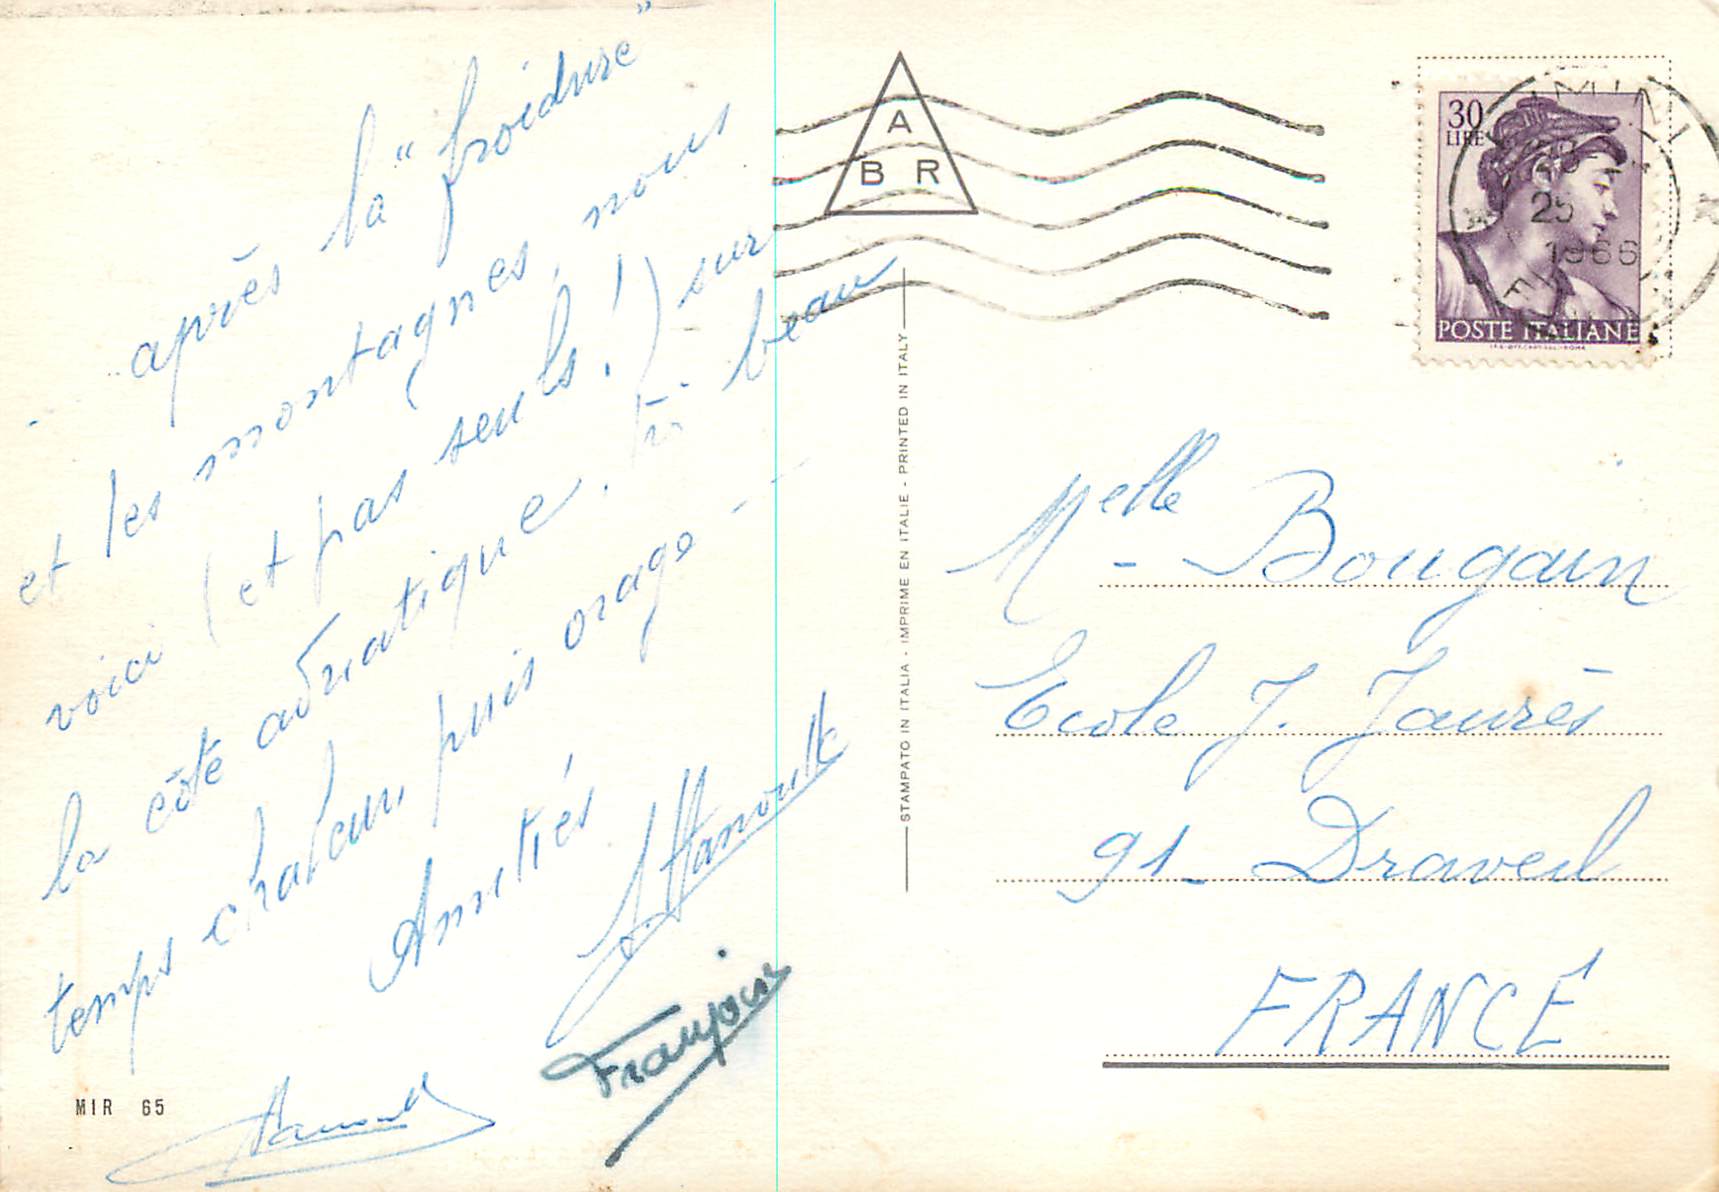 après la "froidure"
et les montagnes, nous
voici (et pas seuls!) sur
la côte adriatique. Très beau
temps chaleur, puis orage --
Amitiés
François
MIR 65
A
B R
STAMPATO IN ITALIA - IMPRIME EN ITALIE - PRINTED IN ITALY
30
LIRE
POSTE ITALIANE
25
1966
Melle - Bougain
Ecole J. Jaurès
91 - Draveil
FRANCE